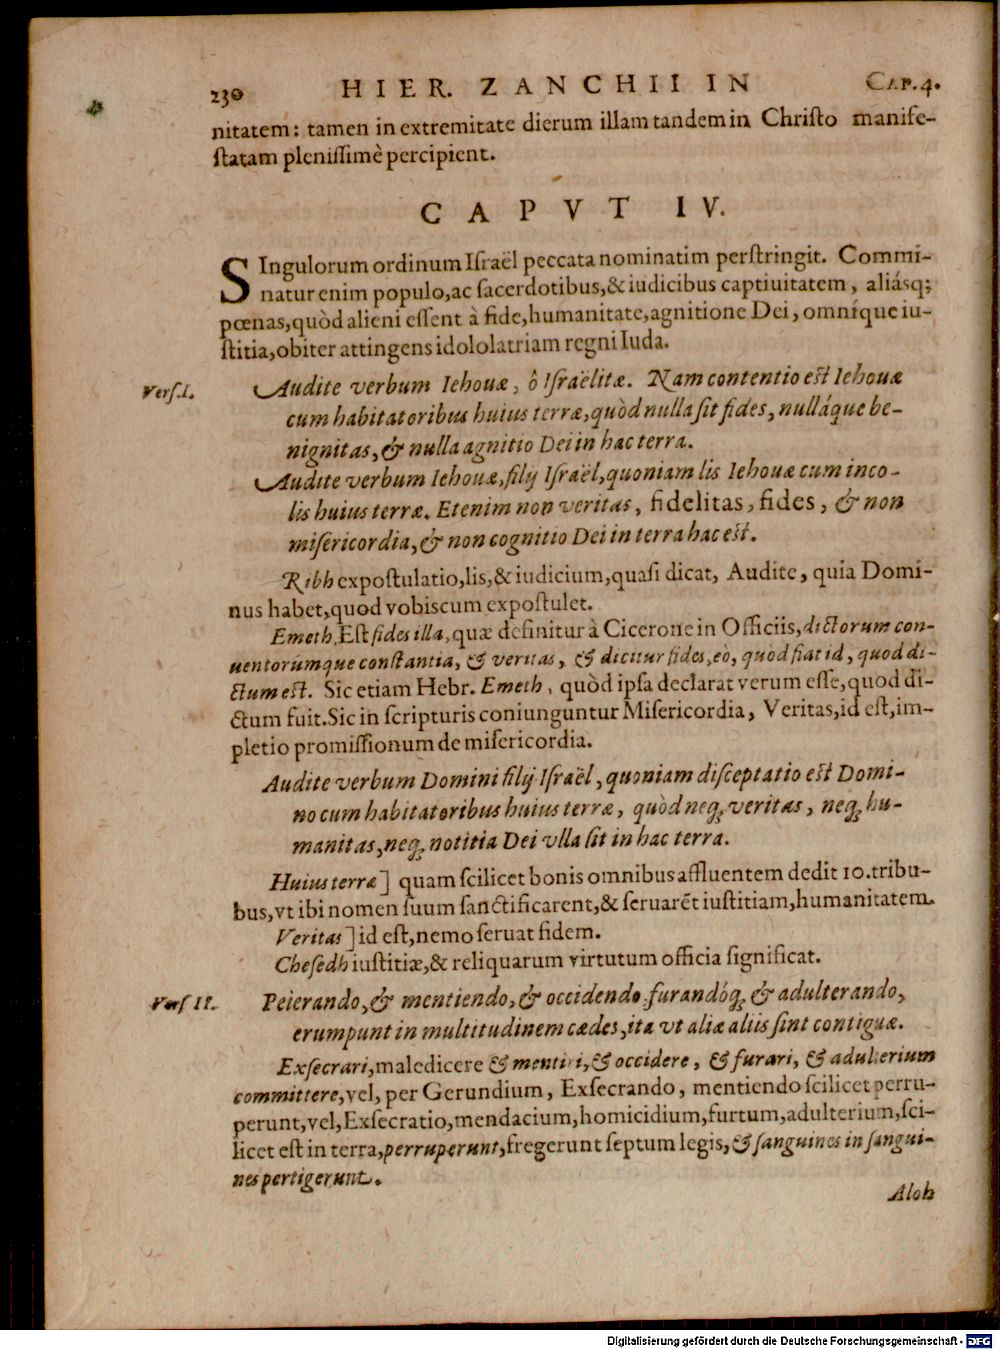 230 HIER. ZANCHII IN CAP. 4.
nitatem: tamen in extremitate dierum illam tandem in Christo manife-
ſtatam pleniſſimè percipient.
CAPVT IV.
SIngulorum ordinum Iſraël peccata nominatim perſtringit. Commi-
natur enim populo, ac ſacerdotibus, & iudicibus captiuitatem, aliásq;
pœnas, quòd alieni eſſent à fide, humanitate, agnitione Dei, omníque iu-
ſtitia, obiter attingens idololatriam regni Iuda.
Verſ. I. Audite verbum Iehouæ, ô Iſraëlitæ. Nam contentio eſt Iehouæ
cum habitatoribus huius terræ, quòd nulla ſit fides, nulláque be-
nignitas, & nulla agnitio Dei in hac terra.
Audite verbum Iehouæ, filij Iſraël, quoniam lis Iehouæ cum inco-
lis huius terræ. Etenim non veritas, fidelitas, fides, & non
miſericordia, & non cognitio Dei in terra hac eſt.
Ribh expoſtulatio, lis, & iudicium, quaſi dicat, Audite, quia Domi-
nus habet, quod vobiscum expoſtulet.
Emeth, Eſt fides illa, quæ definitur à Cicerone in Officiis, dictorum con-
uentorúmque conſtantia, & veritas, & dicitur fides, eò, quòd fiat id, quod di-
ctum eſt. Sic etiam Hebr. Emeth, quòd ipſa declarat verum eſſe, quod di-
ctum fuit. Sic in ſcripturis coniunguntur Miſericordia, Veritas, id eſt, im-
pletio promiſſionum de miſericordia.
Audite verbum Domini filij Iſraël, quoniam diſceptatio eſt Domi-
no cum habitatoribus huius terræ, quòd neq; veritas, neq; hu-
manitas, neq; notitia Dei vlla ſit in hac terra.
Huius terræ] quam ſcilicet bonis omnibus affluentem dedit 10. tribu-
bus, vt ibi nomen ſuum ſanctificarent, & ſeruarēt iuſtitiam, humanitatem.
Veritas] id eſt, nemo ſeruat fidem.
Cheſedh iuſtitiæ, & reliquarum virtutum officia ſignificat.
Verſ II. Peierando, & mentiendo, & occidendo furandóq; & adulterando,
erumpunt in multitudinem cædes, ita vt aliæ aliis ſint contiguæ.
Exſecrari, maledicere & mentiri, & occidere, & furari, & adulterium
committere, vel, per Gerundium, Exſecrando, mentiendo ſcilicet perru-
perunt, vel, Exſecratio, mendacium, homicidium, furtum, adulterium, ſci-
licet eſt in terra, perruperunt, fregerunt ſeptum legis, & ſanguines in ſangui-
nes pertigerunt.
Aloh
Digitalisierung gefördert durch die Deutsche Forschungsgemeinschaft - DFG